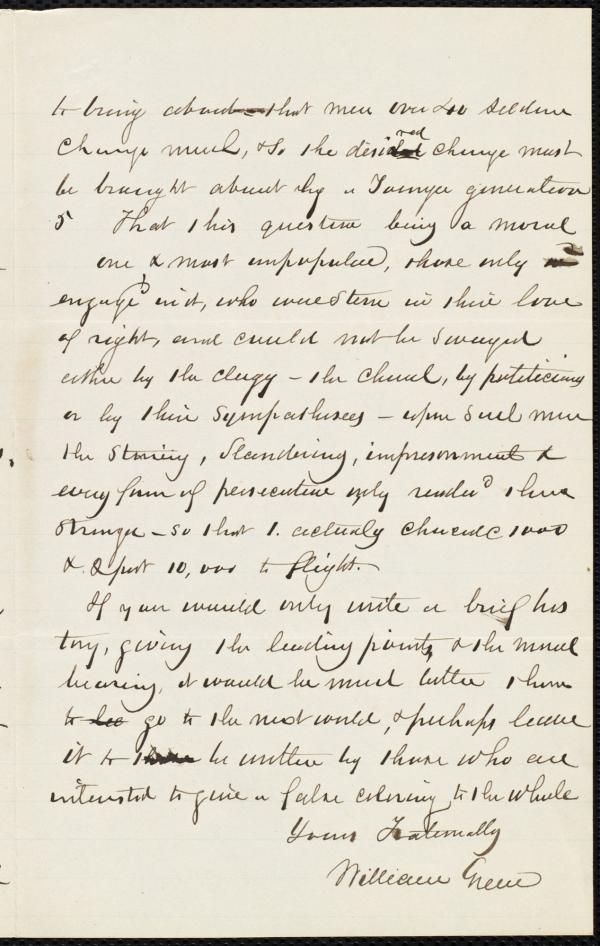 to bring about – that men over 40 seldom
change much, & so the desired change must
be brought about by a Younger generation
5 That this question being a moral
one & most unpopular, those only
engagd in it, who were Stern in their love
of right, and could not be Swayed
either by the clergy – the Church, by politicians
or by their Sympathisers – upon Such men
the Stoning, Slandering, impresonment &
every form of persecution only renderd them
Stronger – so that 1. actually chased 1000
& 2 put 10,000 to flight.
If you would only write a brief his
tory, giving the leading points, & the moral
bearing, it would be much better than
to go to the next world, & perhaps leave
it to be written by those who are
interested to give a false coloring to the whole
Yours Fraternally
William Green